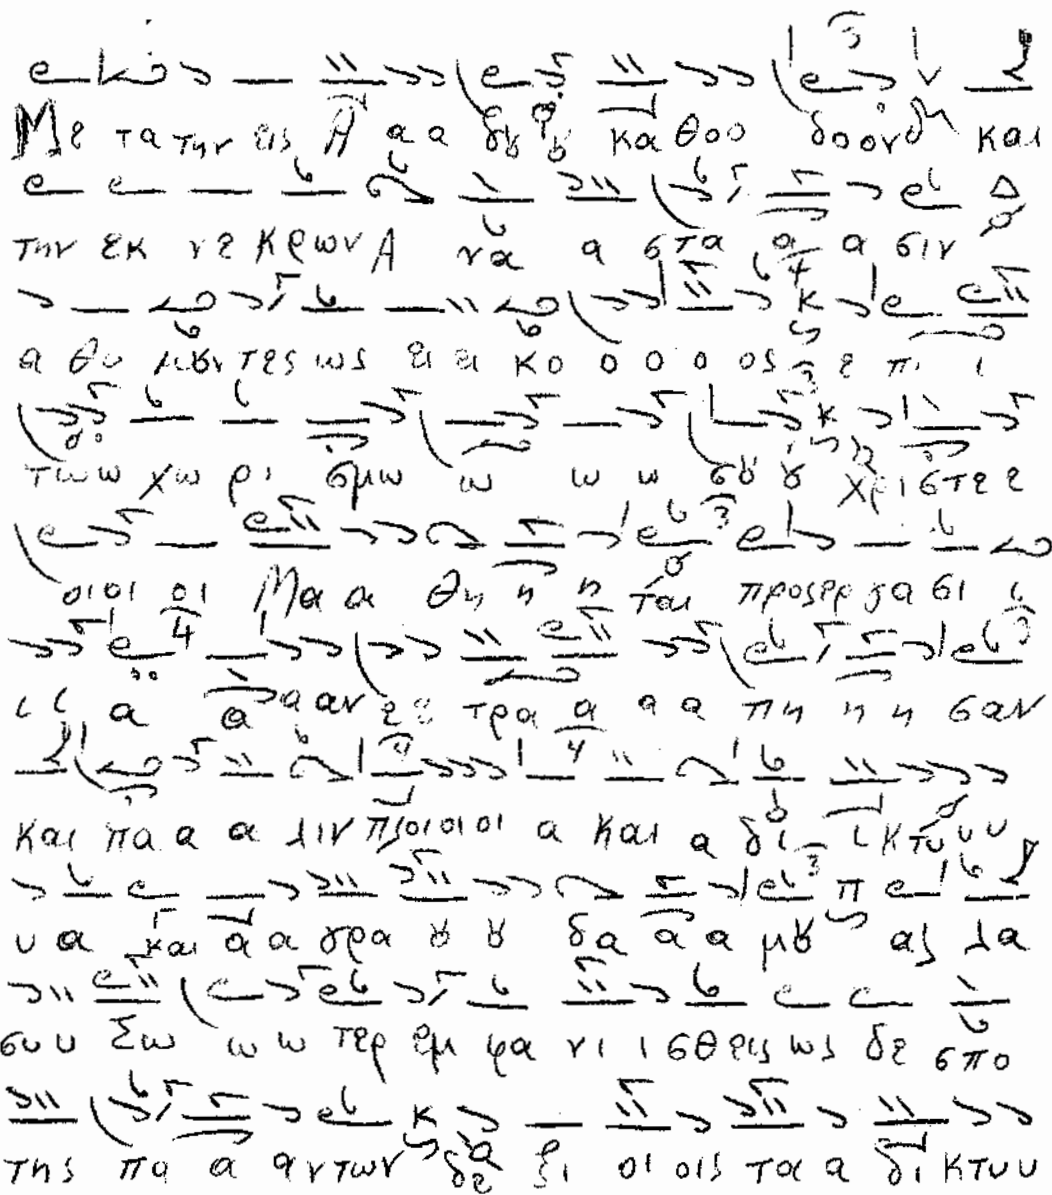 Με τα την εις Α α α δȣ ȣ κα θοο δοον δη και
την εκ νε κρων Α να α στα α α σιν
α θυ μȣν τες ως ει ει κο ο ο ο ος ε πι ι
τωω χω ρι σμω ω ω ω σȣ ȣ Χρι στε ε
οι οι οι Μα α θη η η ται προς ερ γα σι ι
ι ι α α α αν ε ε τρα α α α πη η η σαν
και πα α α λιν πλοι οι οι α και α δι ι κτυ υ υ
υ α και α α γρα ȣ ȣ δα α α μȣ αλ λα
συ υ Σω ω ω τερ εμ φα νι ι σθεις ως δε σπο
της πα α αν των δε ξι οι οις τα α δι κτυ υ